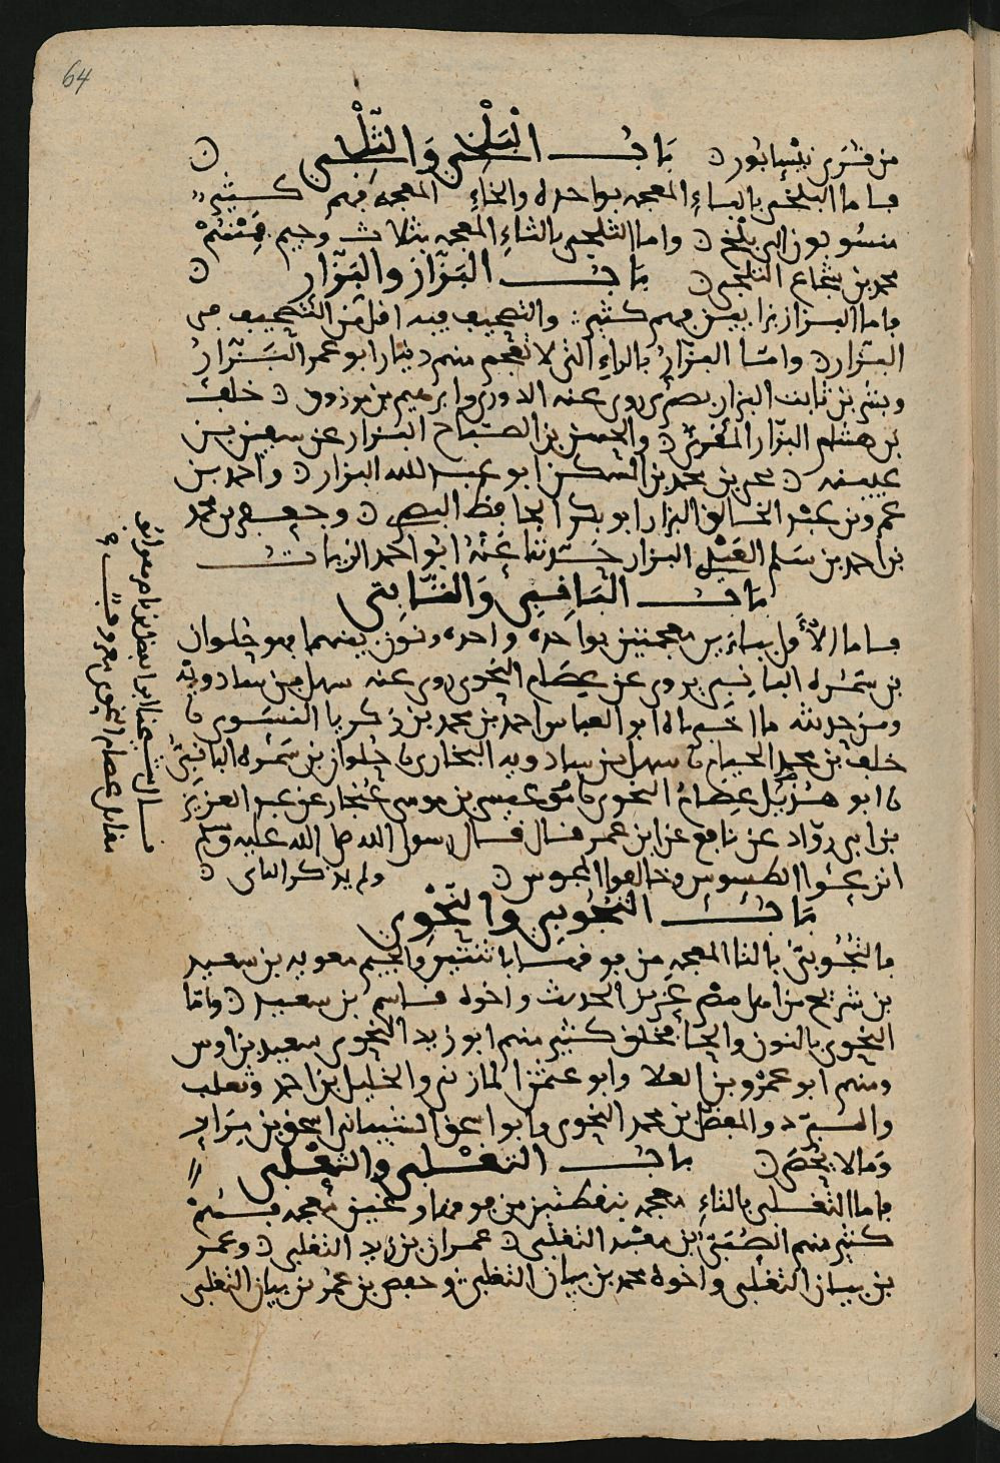 64
من قرى نيسابور ن باب البلخي والثلجي ن
فاما البلخي بالباء المعجمه بواحده والخاء المعجمه فهم كثير
منسوبون الى بلخ ن واما الثلجي بالثاء المعجمه بثلاث وجيم فمنهم
محمد بن شجاع الثلجي ن باب البزاز والبزار ن
فاما البزاز بزايين فهم كثير والتصحيف فيه اقل من التصحيف في
البزار ن واما البزار بالراء التي لا تعجم منهم دينار ابو عمر البزار
وبشر بن ثابت البزار بصري روى عنه الدوري وابرهيم بن مرزوق ن خلف
بن هشام البزار المقرئ ن والحسن بن الصباح البزار عن سفين بن
عيينه ن يحيى بن محمد بن السكن ابو عبد الله البزار ن واحمد بن
عمرو بن عبد الخالق البزار ابو بكر الحافظ البصري ن وجعفر بن محمد
بن احمد بن سلم العبدي البزار حدثنا عنه ابو احمد الزيات
باب اليافني والثابتي
فاما الاول بياءين معجمتين بواحده واحده ونون بينهما فهو حلوان
بن سمره البانبي يروي عن عصام النحوي روى عنه سهل بن شادويه
ومن حديثه ما اخبرناه ابو العباس احمد بن محمد بن زكريا النسوي نا
خلف بن محمد الخيام نا سهل بن شادويه البخاري نا حلوان بن سمره البانبي
نا ابو هزيل عصام النحوي نا عيسى بن موسى غنجار عن عبد العزيز
بن ابي رواد عن نافع عن ابن عمر قال قال رسول الله صلى الله عليه وسلم
وخالفوا المجوس ن ولم يذكر الثاني ن
باب التجوبي والنحوي
فالتجوبي بالتا المعجمه من فوقها باثنتين والجيم معويه بن سعيد
بن شريح من اهل مصر عزيز الحديث واخوه قاسم بن سعيد ن واما
النحوي بالنون والحا فخلق كثير منهم ابو زيد النحوي سعيد بن اوس
ومنهم ابو عمرو بن العلا وابو عثمن المازني والخليل بن احمد وثعلب
والمبرد والمفضل بن محمد النحوي وابو اسحق الشيباني اسحق بن مرار
وما لا يحصى ن باب التغلبي والثعلبي
فاما التغلبي بالتاء معجمه بنقطتين من فوقها وغين معجمه فمنهم
كثير منهم الصبي ابن معبد التغلبي ن عمران بن زيد التغلبي ن وعمر
بن بيان التغلبي واخوه محمد بن بيان التغلبي وحفص بن عمر بن بيان التغلبي
قال شيخنا ابو الفضل بن ناصر
عصام النحوي معروف